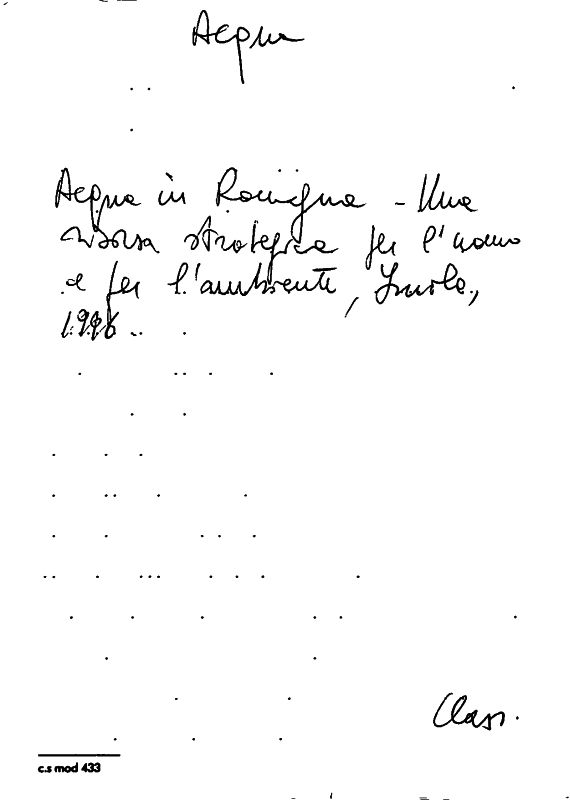 Acqua
Acqua in Romagna - Una
risorsa strategica per l'uomo
e per l'ambiente, Imola,
1996.
Class.
c.s mod 433